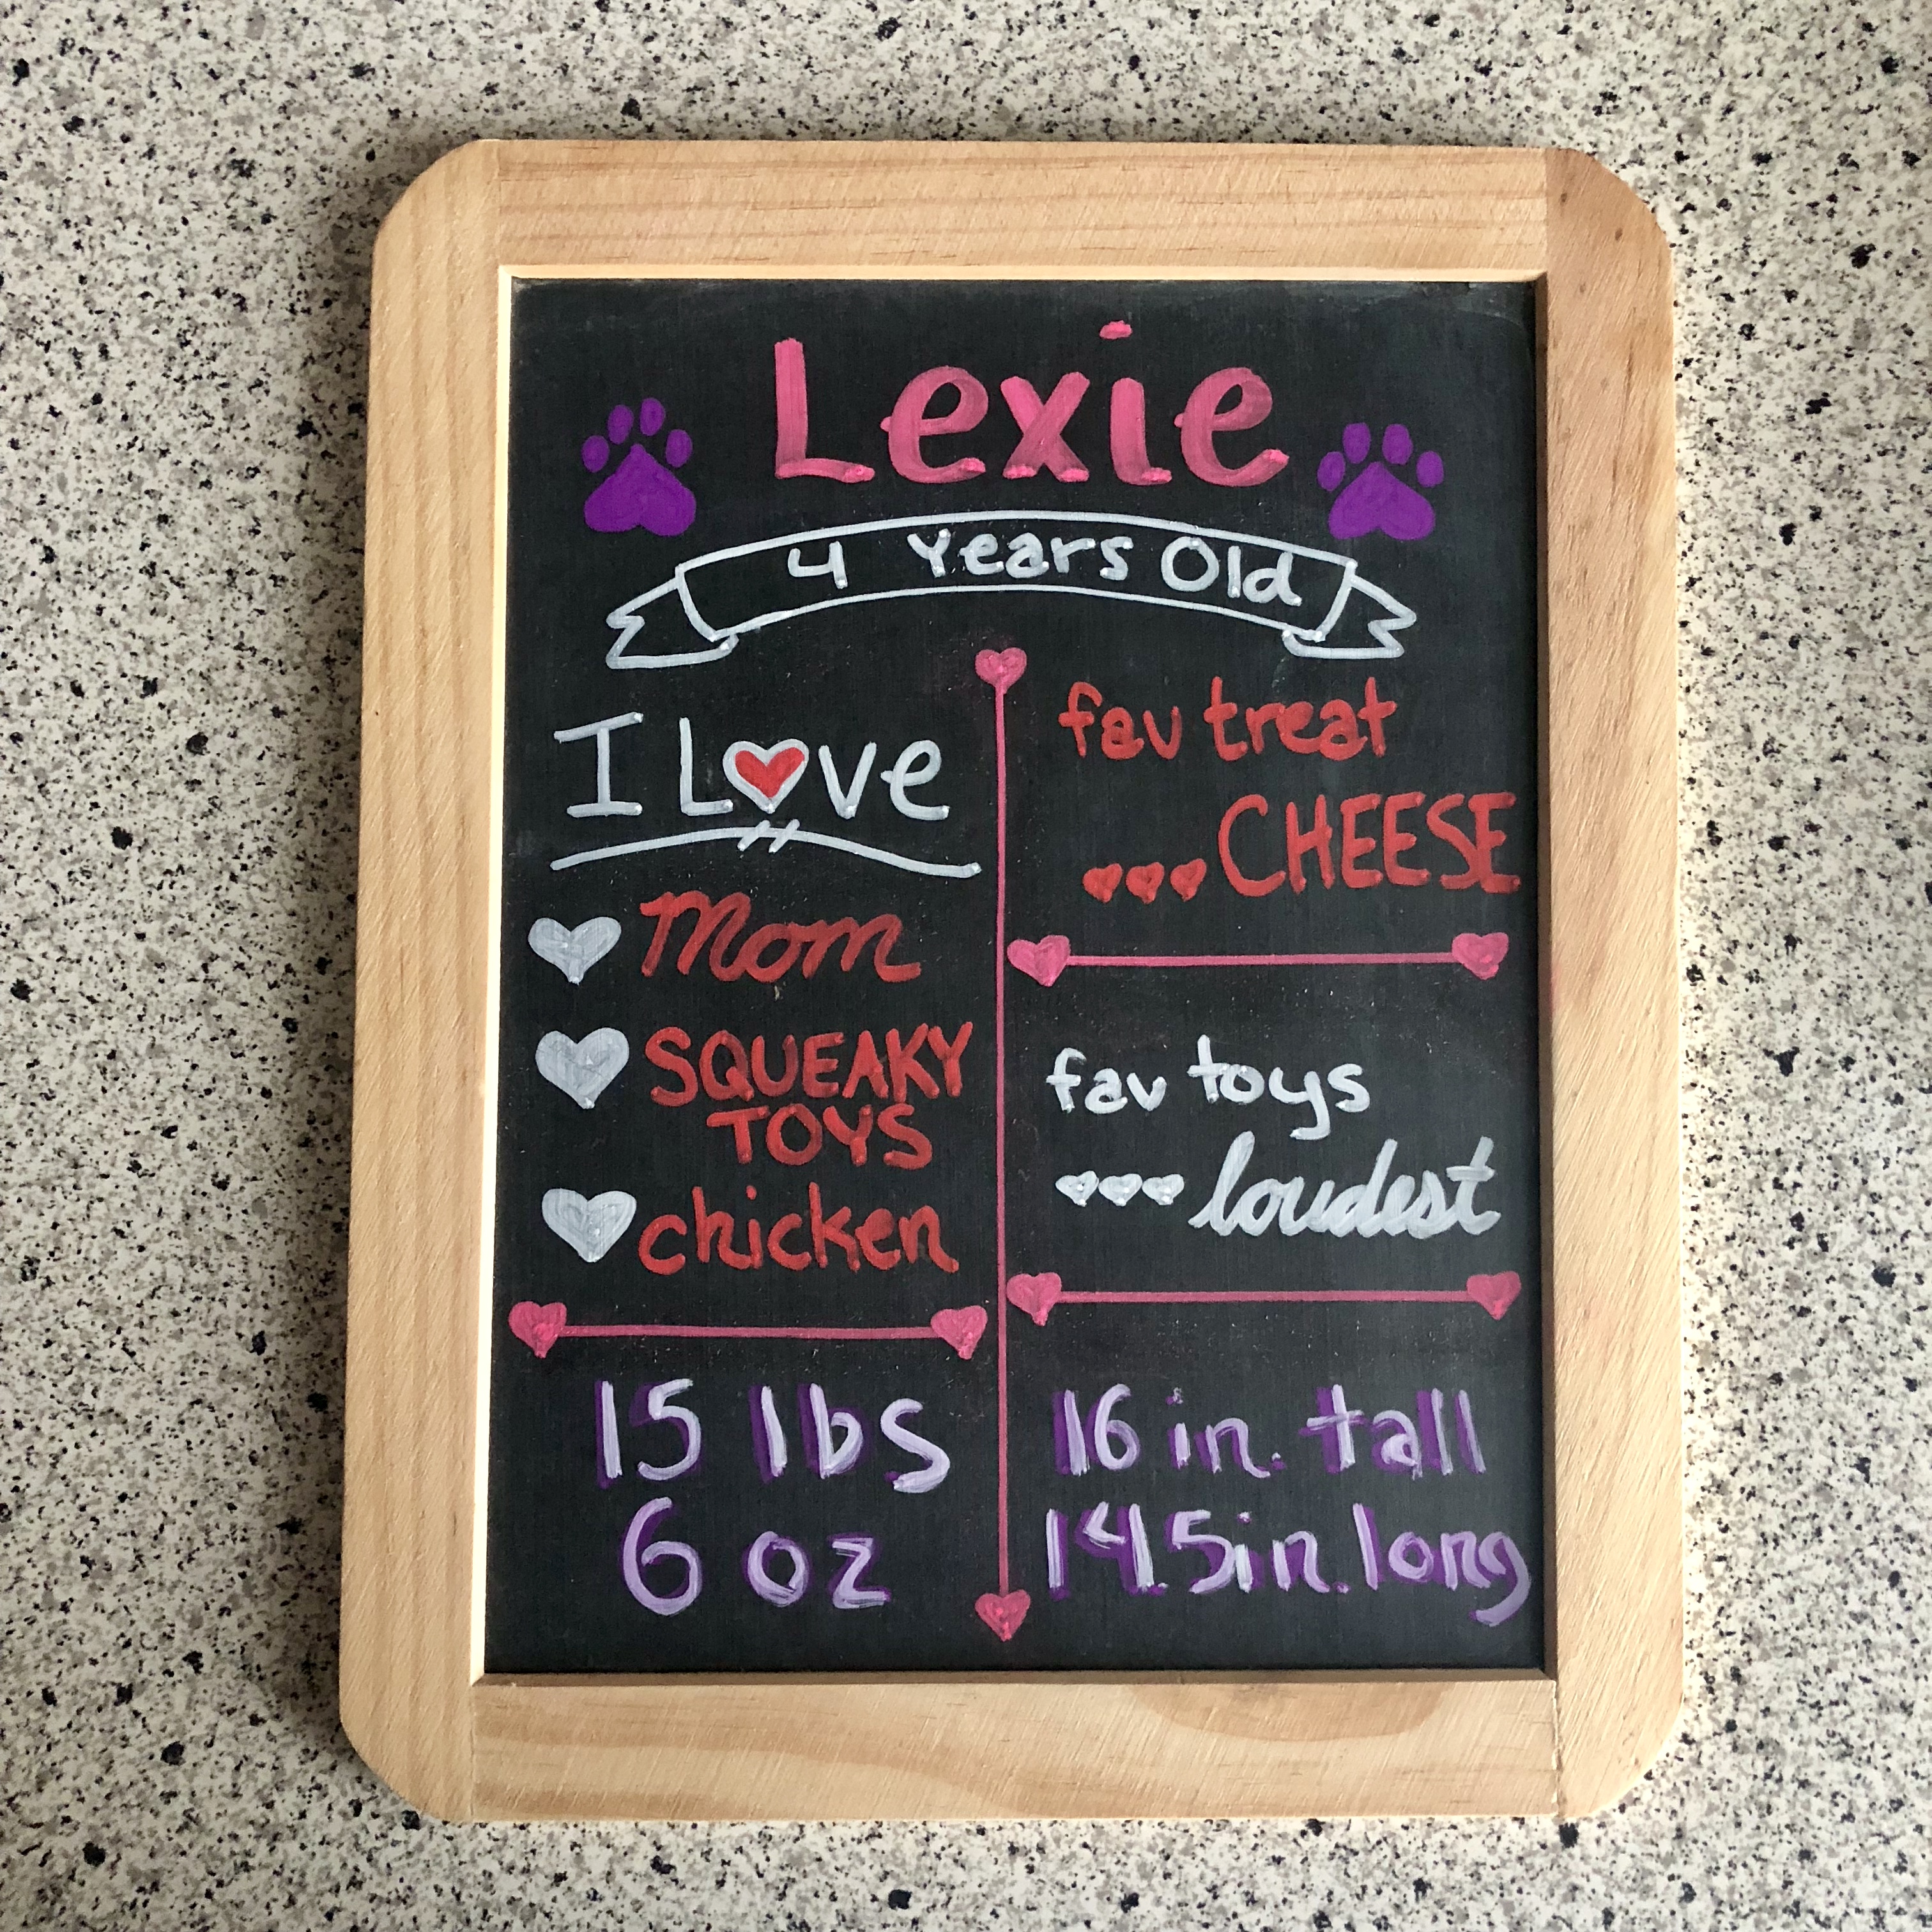 Lexie
4 Years Old
I Love
Mom
SQUEAKY
TOYS
chicken
15 lbs
6 oz
fav treat
...CHEESE
fav toys
...loudest
16 in. tall
14.5in. long